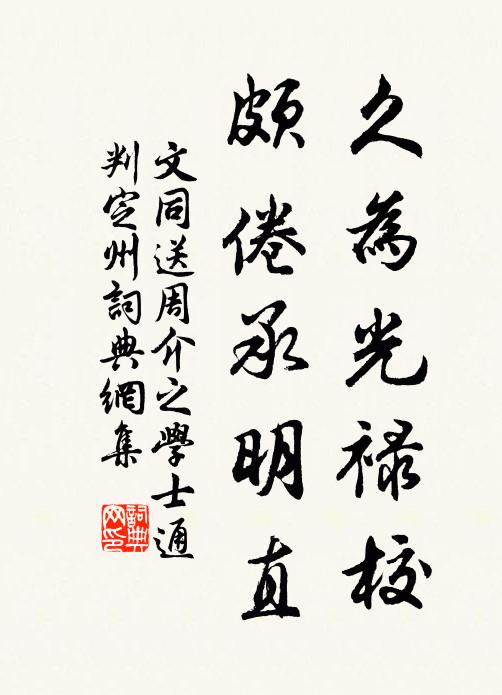 久為光祿校
頗倦承明直
文同送周介之學士通
判定州詞典網集
詞典网印